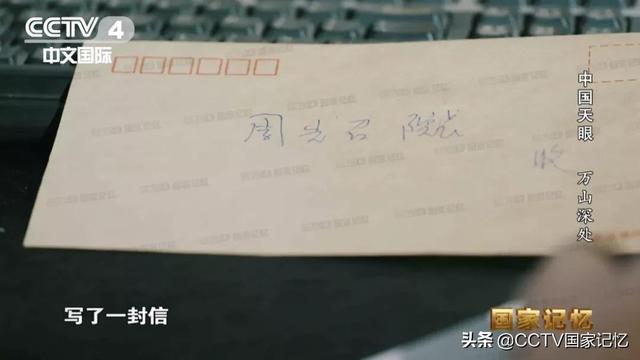 CCTV 4
中文国际
周光召 院长
收
中国天眼 万山深处
写了一封信
国家记忆
头条 @CCTV国家记忆